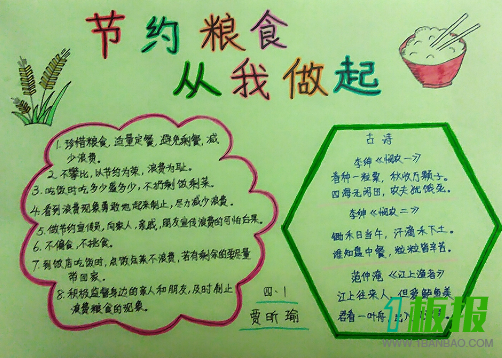 节约粮食
从我做起
1. 珍惜粮食，适量定餐，避免剩餐，减
少浪费。
2. 不攀比，以节约为荣，浪费为耻。
3. 吃饭时吃多少盛多少，不扔剩饭剩菜。
4. 看到浪费现象勇敢地起来制止，尽力减少浪费。
5. 做节约宣传员，向家人，亲戚，朋友宣传浪费的可怕后果。
6. 不偏食，不挑食。
7. 到饭店吃饭时，点饭点菜不浪费，若有剩余的要尽量
带回家。
8. 积极监督身边的家人和朋友，及时制止
浪费粮食的现象。
四·1
贾昕瑜
古诗
李绅《悯农一》
春种一粒粟，秋收万颗子。
四海无闲田，农夫犹饿死。
李绅《悯农二》
锄禾日当午，汗滴禾下土。
谁知盘中餐，粒粒皆辛苦。
范仲淹《江上渔者》
江上往来人，但爱鲈鱼美
君看一叶舟，出
1板报
WWW.1BANBAO.COM